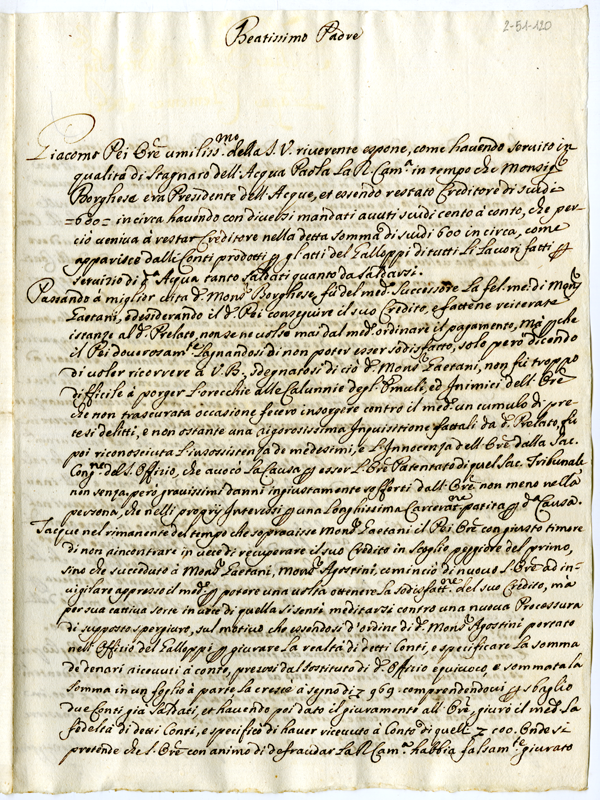 2-51-120
Beatissimo Padre
Giacomo Pei Ore umiliss.mo della S. V. riverente espone, come havendo servito in
qualità di Stagnaro dell'Acqua Paola la R. Cam.a in tempo che Monsig.r
Borghese era Presidente dell'Acque, et essendo restato Creditore di scudi
=680= in circa havendo con diversi mandati avuti scudi cento à conto, che per-
ciò veniva à restar Creditore nella detta somma di scudi 600 in circa, come
apparisce dalli Conti prodotti p gl'acti del Galloppi di tutti li Lavori fatti p
servizio di d.a Acqua tanto saldati quanto da saldarsi.
Passando à miglior vita d.o Mons.r Borghese, fù del med.o Successore la fel. me. di Mons.r
Gaetani, e desiderando il d.o Pei conseguire il suo Credito, e fattene reiterate
istanze al d.o Prelato, non se ne volse mai dal med.o ordinare il pagamento, mà p che
il Pei doverosam.te lagnandosi di non poter esser sodisfatto, solo però dicendo
di voler ricorrere à V. B., sdegnatosi di ciò d.o Mons.r Gaetani, non fù troppo
difficile à porger l'orecchie alle Calunnie degl'Emuli, ed Inimici dell'Ore
che non trascurata occasione fecero insorgere contro il med.o un cumulo di pre-
tesi delitti, e non ostante una rigorosissima Inquisitione fattali da d.o Prelato, fù
poi riconosciuta l'insossistenza de medesimi, e l'Innocenza dell'Ore dalla Sac.
Cong.ne del S. Offizio, che avocò la Causa p esser l'Ore Patentato di quel Sac. Tribunale
non senza però gravissimi danni ingiustamente sofferti dall'Ore non meno nella
persona, che nelli proprij Interessi p una longhissima Carcerat.one patita p d.a Causa.
Tacque nel rimanente del tempo che sopravisse Mons.r Gaetani il Pei Ore con giusto timore
di non aincontrare in vece di recuperare il suo Credito in Scoglio peggiore del primo,
sino che succeduto à Mons.r Gaetani, Mons.r Agostini, cominciò di nuovo l'Ore ad in-
vigilare appresso il med.o p potere una volta ottenere la sodisfatt.one del suo Credito, mà
per sua cattiva sorte in vece di quella si sentì meditarsi contro una nuova Processura
di supposto spergiuro, sul motivo che essendosi d'ordine di d.o Mons.r Agostini portato
nell'Offizio del Galloppi p giurare la realtà di detti Conti, e specificare la somma
de denari ricevuti à conto, presosi dal sostituto di d.o Offizio equivoco, e sommata la
somma in un foglio à parte la crescè à segno di 969 comprendendovi p sbaglio
due Conti già saldati, et havendo poi dato il giuramento all'Ore, giurò il med.o la
fedeltà di detti Conti, e specificò di haver ricevuto à Conto di quelli 100. Onde si
pretende che l'Ore con animo di defraudar la R. Cam.a habbia falsam.te giurato